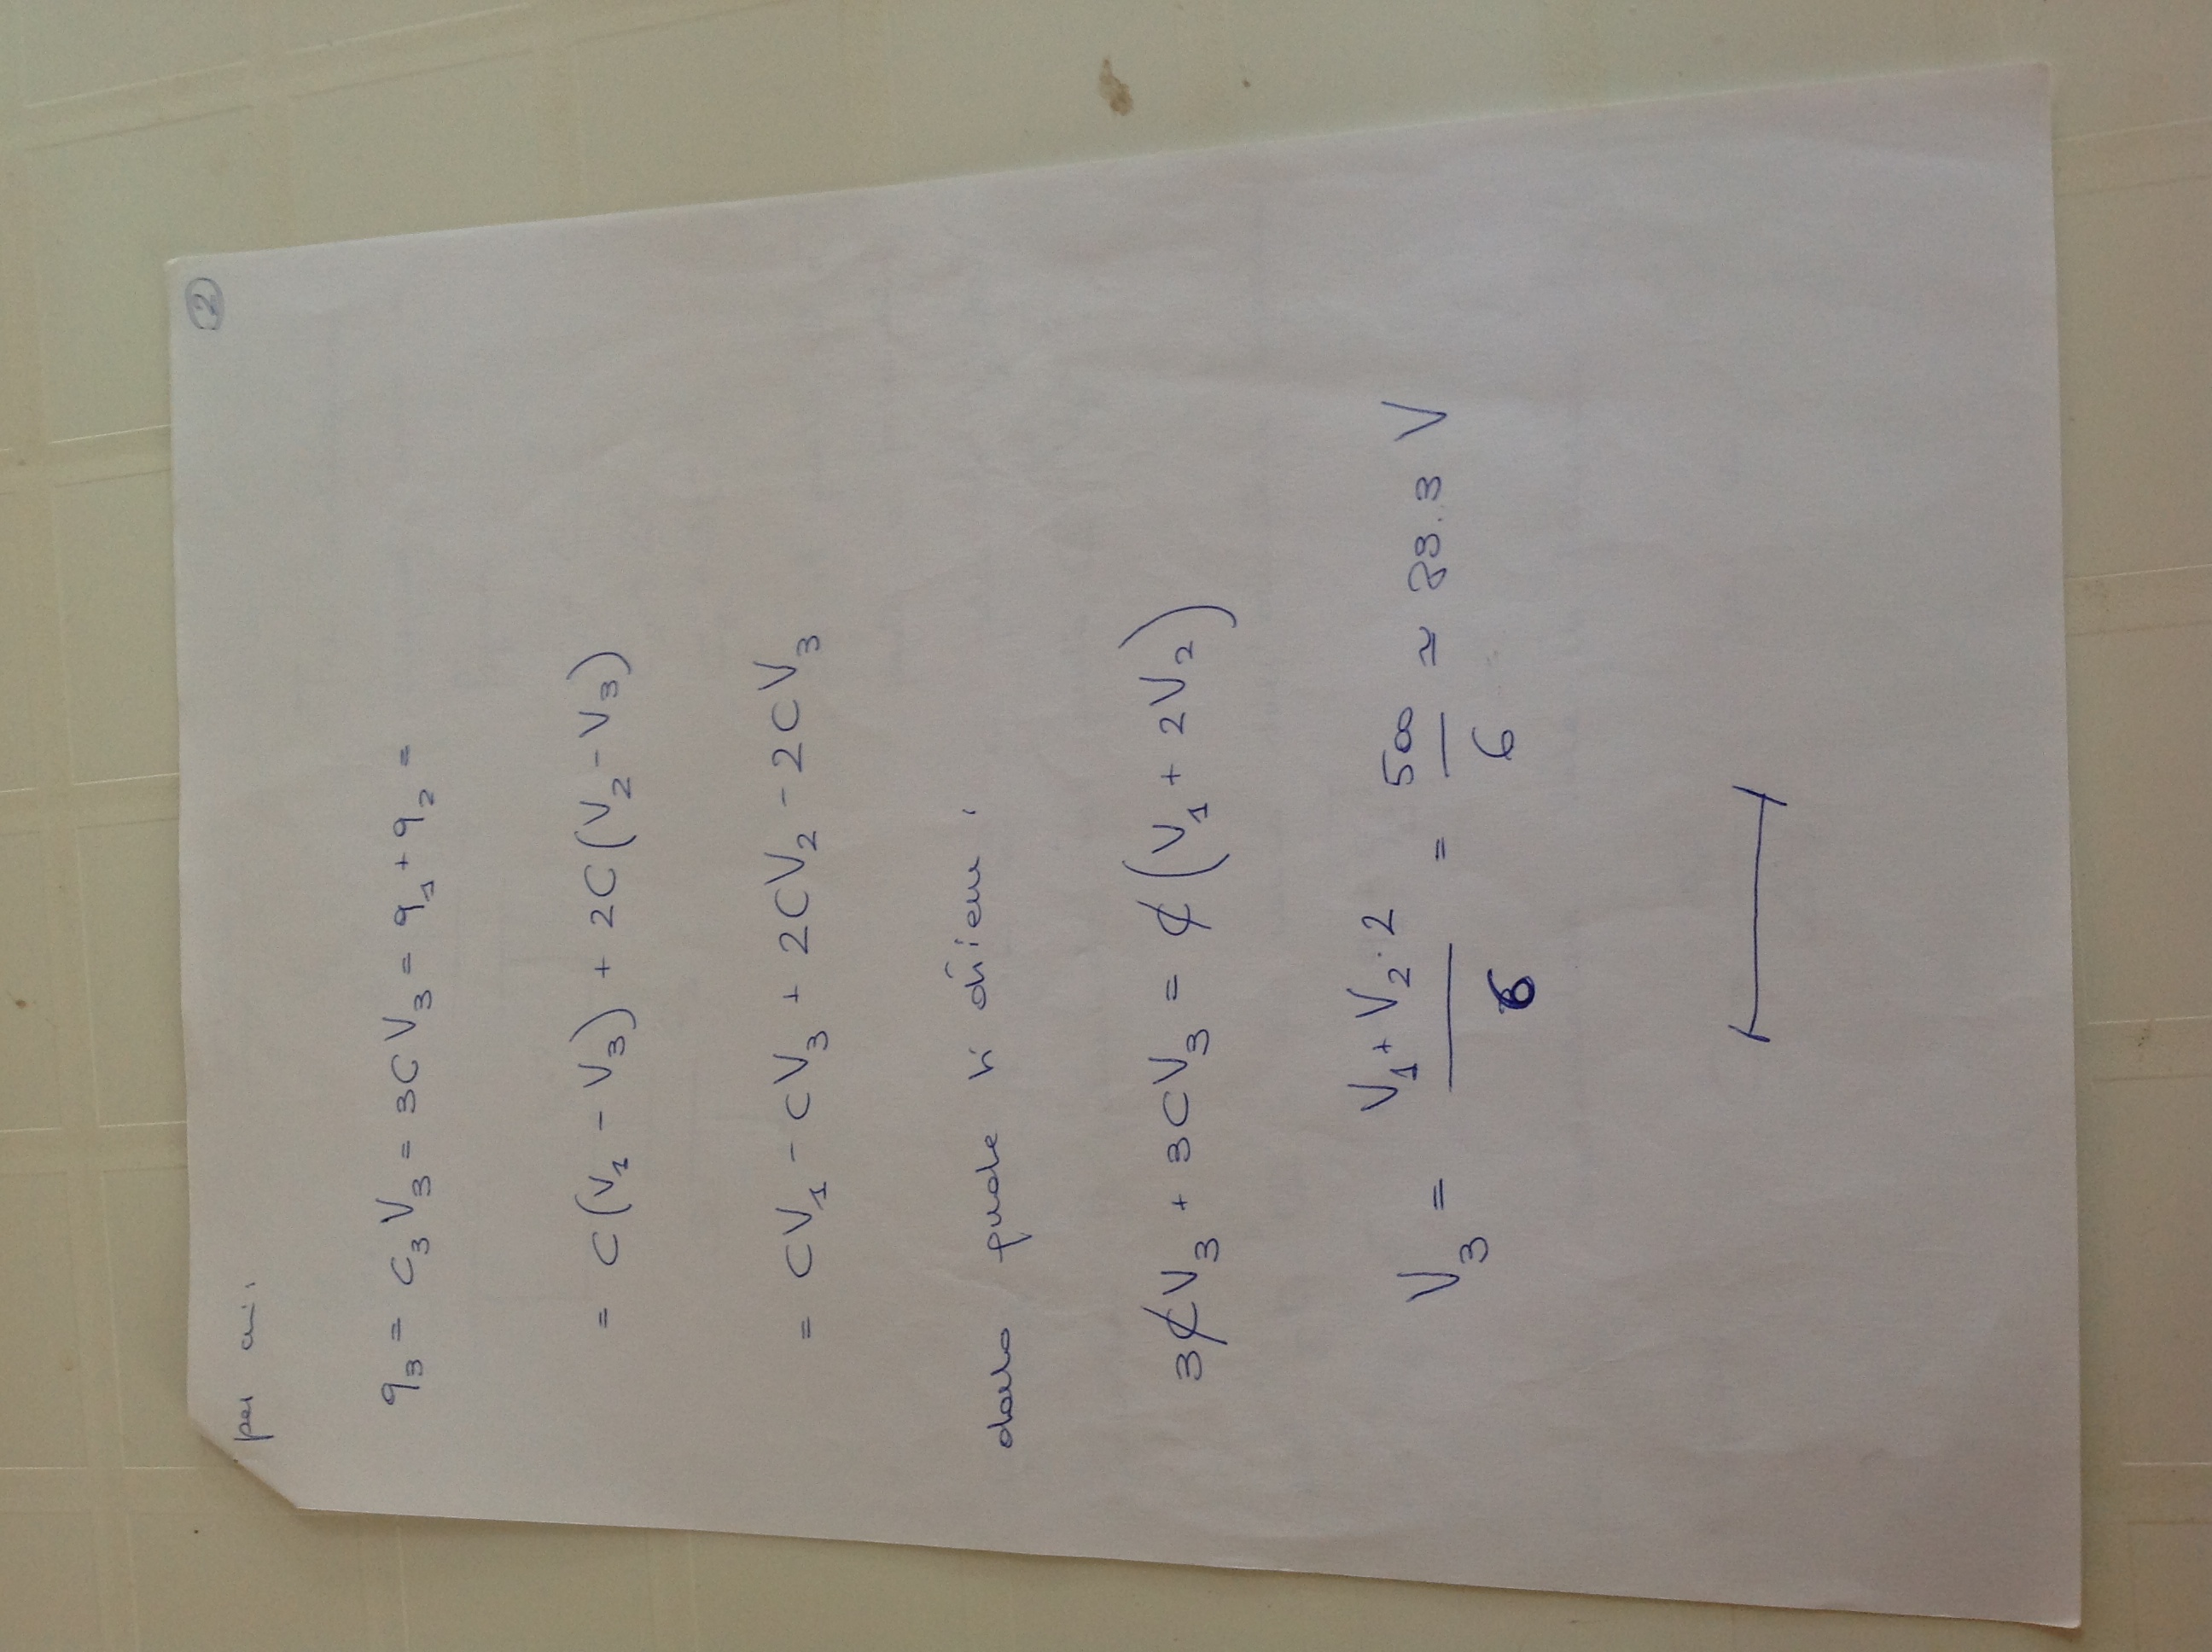 2
per cui:
q₃ = C₃V₃ = 3CV₃ = q₁ + q₂ =
= C(V₁ - V₃) + 2C(V₂ - V₃)
= CV₁ - CV₃ + 2CV₂ - 2CV₃
dalla quale si ottiene:
3CV₃ + 3CV₃ = C(V₁ + 2V₂)
V₃ = (V₁ + V₂·2)/6 = 500/6 ≃ 83.3 V